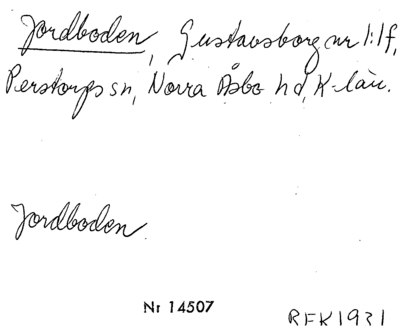 Jordboden, Gustavsborg nr 1:1f,
Perstorps sn, Norra Åsbo hd, K-län.
Jordboden
Nr 14507
RFK 1931